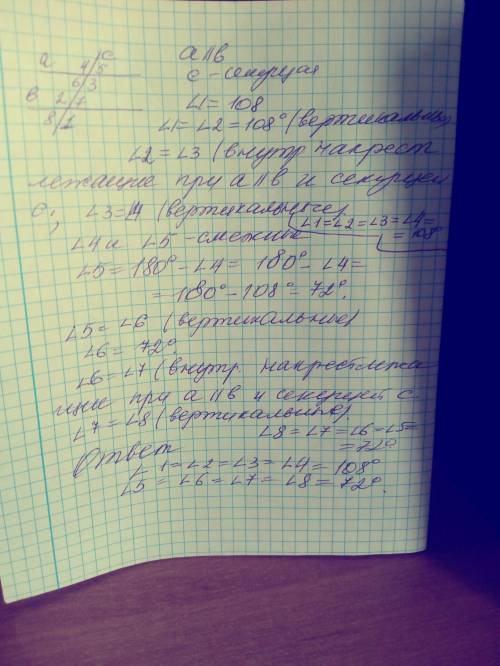 a c
4 5
6 3
в 2 7
8 1
a||в
c - секущая
∠1 = 108
∠1 = ∠2 = 108° (вертикальные)
∠2 = ∠3 (внутр накрест
лежащие при a||в и секущей
c; ∠3 = ∠4 (вертикальные)
(∠1=∠2=∠3=∠4=
= 108°
∠4 и ∠5 - смежные
∠5 = 180° - ∠4 = 180° - ∠4 =
= 180° - 108° = 72°.
∠5 = ∠6 (вертикальные)
∠6 = 72°
∠6 = ∠7 (внутр. накрестлежа
щие при a||в и секущей c.
∠7 = ∠8 (вертикальные)
∠8 = ∠7 = ∠6 = ∠5 =
= 72°
Ответ
∠1 = ∠2 = ∠3 = ∠4 = 108°
∠5 = ∠6 = ∠7 = ∠8 = 72°.